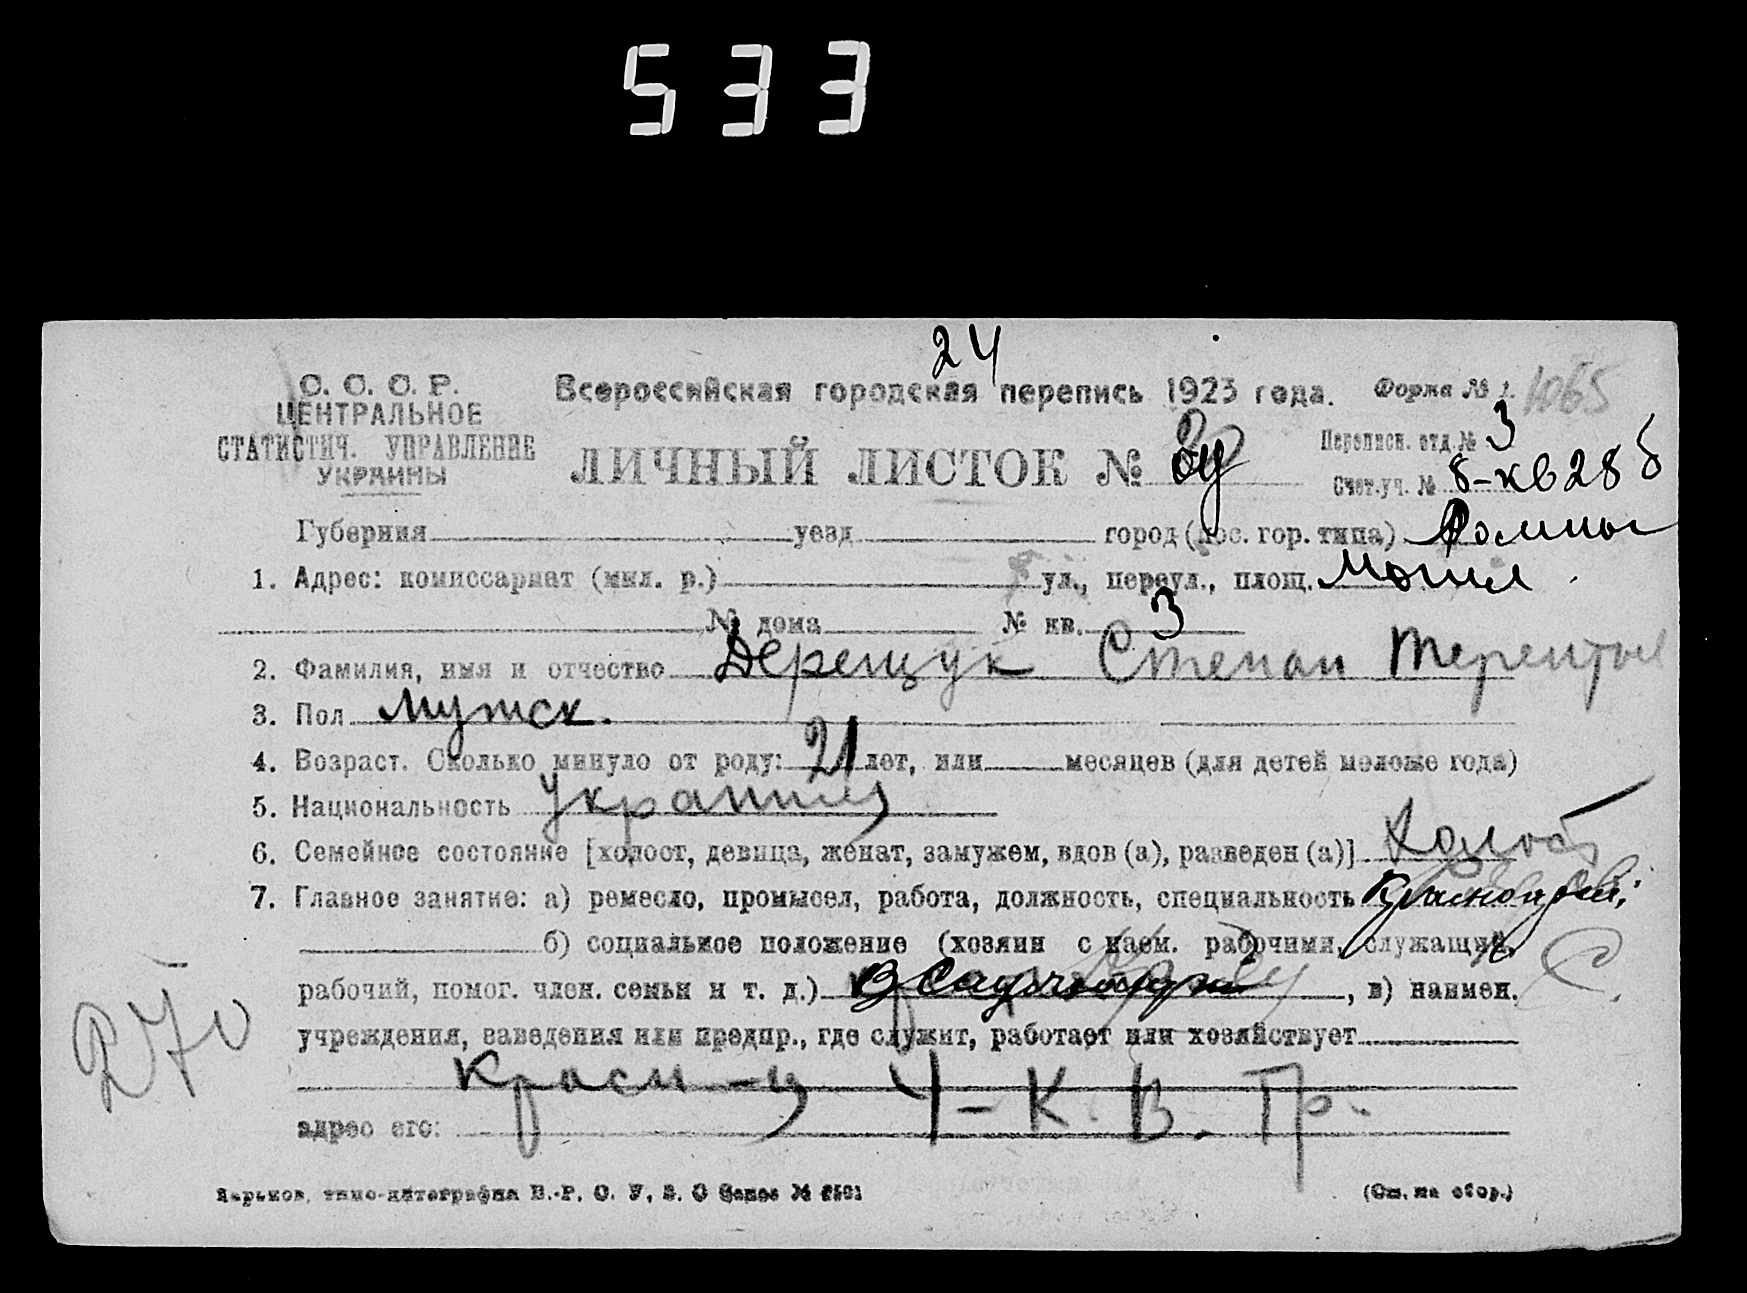 533
24
С. С. С. Р. Всероссийская городская перепись 1923 года. Форма № 1. 1065
ЦЕНТРАЛЬНОЕ
СТАТИСТИЧ. УПРАВЛЕНИЕ
УКРАИНЫ
ЛИЧНЫЙ ЛИСТОК №
Переписн. отд. № 3
Счет. уч. № 8-кв 28 б
Губерния уезд город (пос. гор. типа) Ромны
1. Адрес: комиссариат (мил. р.) ул., переул., площ. Могил
№ дома № кв. 3
2. Фамилия, имя и отчество Дерещук Степан Терентье
3. Пол Мужск.
4. Возраст. Сколько минуло от роду: 21 лет, или месяцев (для детей моложе года)
5. Национальность Украинец
6. Семейное состояние [холост, девица, женат, замужем, вдов (а), разведен (а)]. Холост
7. Главное занятие: а) ремесло, промысел, работа, должность, специальность
б) социальное положение (хозяин с наем. рабочими, служащий, С.
рабочий, помог. член. семьи и т. д.) , в) наимен.
учреждения, заведения или предпр., где служит, работает или хозяйствует
Красн-ц 4-К. В. Тр.
адрес его:
270
(См. на обор.)